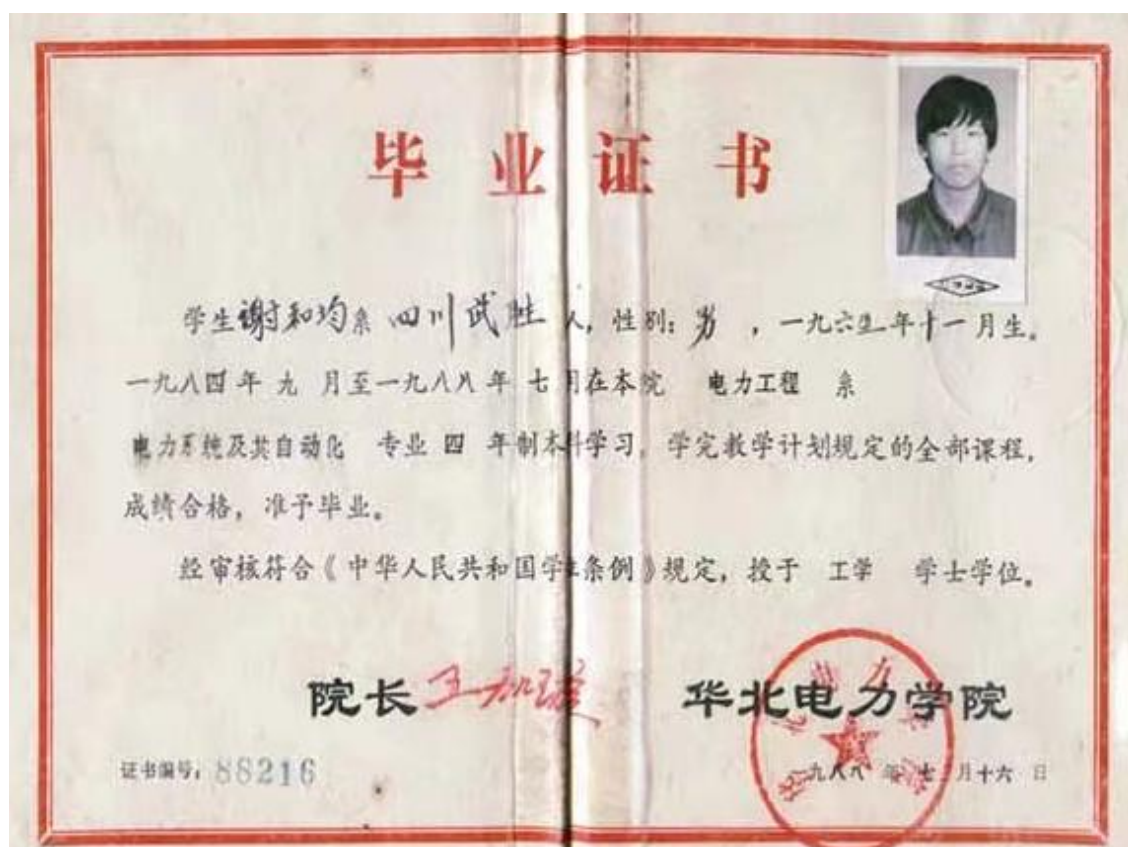 毕业证书
学生谢和均系四川武胜人，性别：男，一九六五年十一月生。
一九八四年九月至一九八八年七月在本院 电力工程 系
电力系统及其自动化 专业 四 年制本科学习，学完教学计划规定的全部课程，
成绩合格，准予毕业。
经审核符合《中华人民共和国学位条例》规定，授于 工学 学士学位。
院长 华北电力学院
证书编号：88216 一九八八年七月十六日